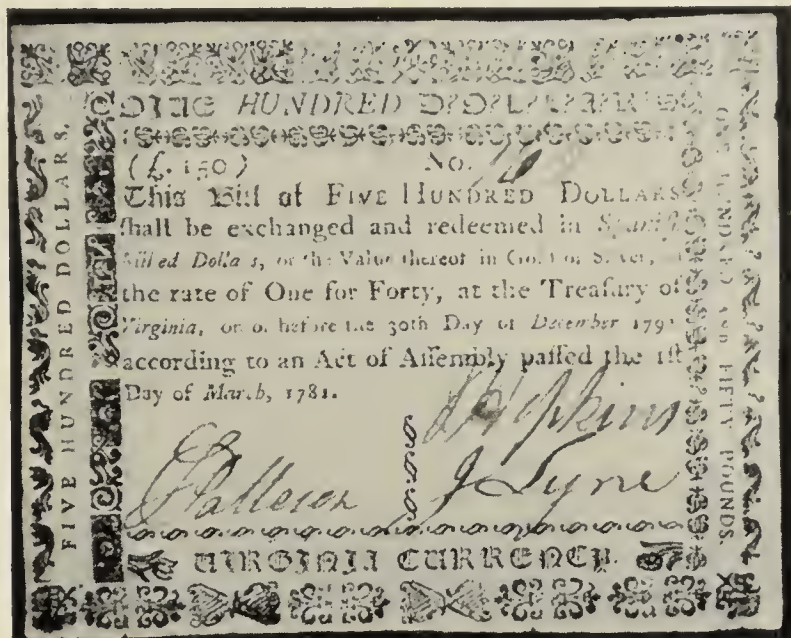 FIVE HUNDRED DOLLARS.
FIVE HUNDRED D?O?L?L?A?R?S
(£. 150) No.
This Bill of FIVE HUNDRED DOLLARS
ſhall be exchanged and redeemed in Spaniſh
milled Dollars, or the Value thereof in Gold or Silver,
the rate of One for Forty, at the Treaſury of
Virginia, on or before the 30th Day of December 179
according to an Act of Aſſembly paſſed the 1ſt
Day of March, 1781.
Hopkins
J Lyne
VIRGINIA CURRENCY.
ONE HUNDRED AND FIFTY POUNDS.